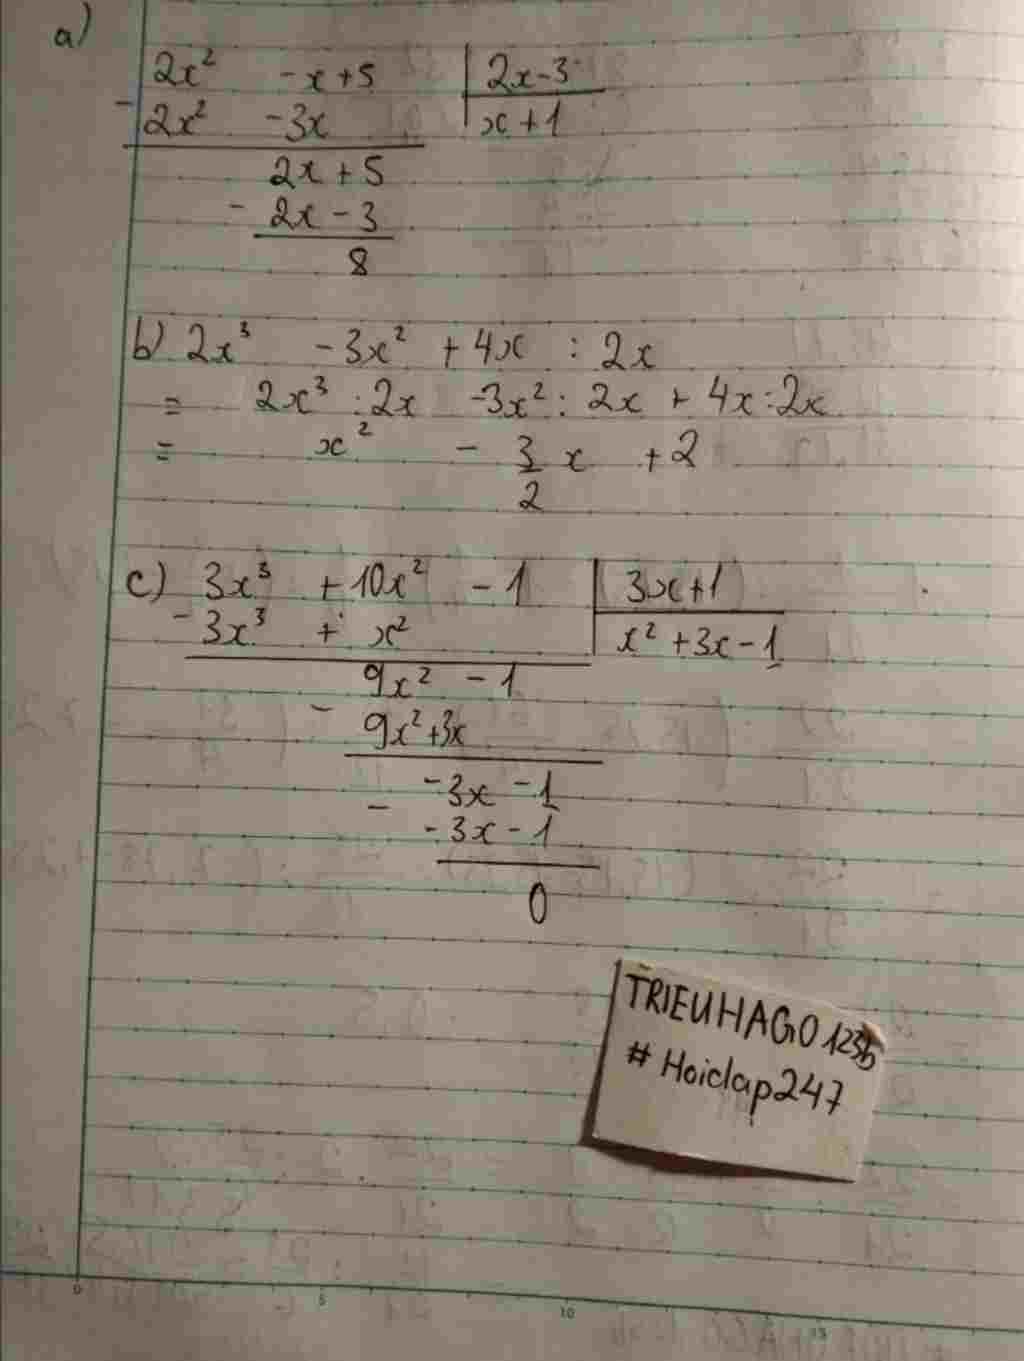 a)
2x² -x+5 | 2x-3
- 2x² -3x | x+1
2x+5
- 2x-3
8
b) 2x³ -3x² +4x : 2x
= 2x³ : 2x -3x² : 2x + 4x : 2x
= x² - 3/2 x +2
c) 3x³ +10x² -1 | 3x+1
- 3x³ + x² | x²+3x-1
9x² -1
- 9x²+3x
-3x -1
- -3x -1
0
TRIEUHAGO1235
# Hoidap247
0 5 10 15